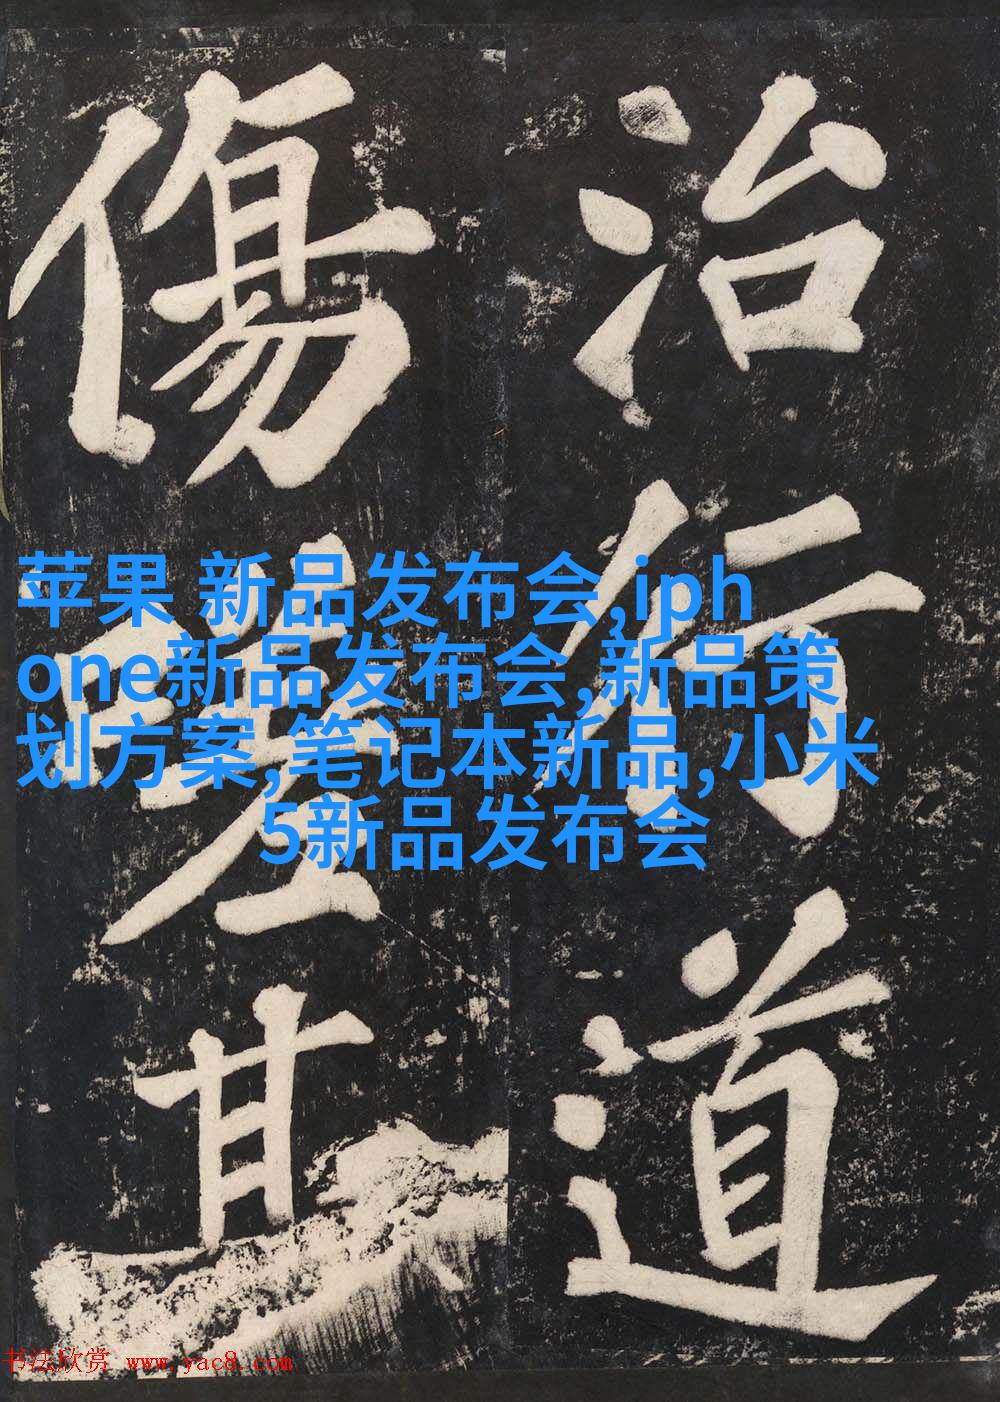 治行道
傷嗟
苹果 新品发布会,iph
one新品发布会,新品策
划方案,笔记本新品,小米
5新品发布会
书法欣赏 www.yac8.com